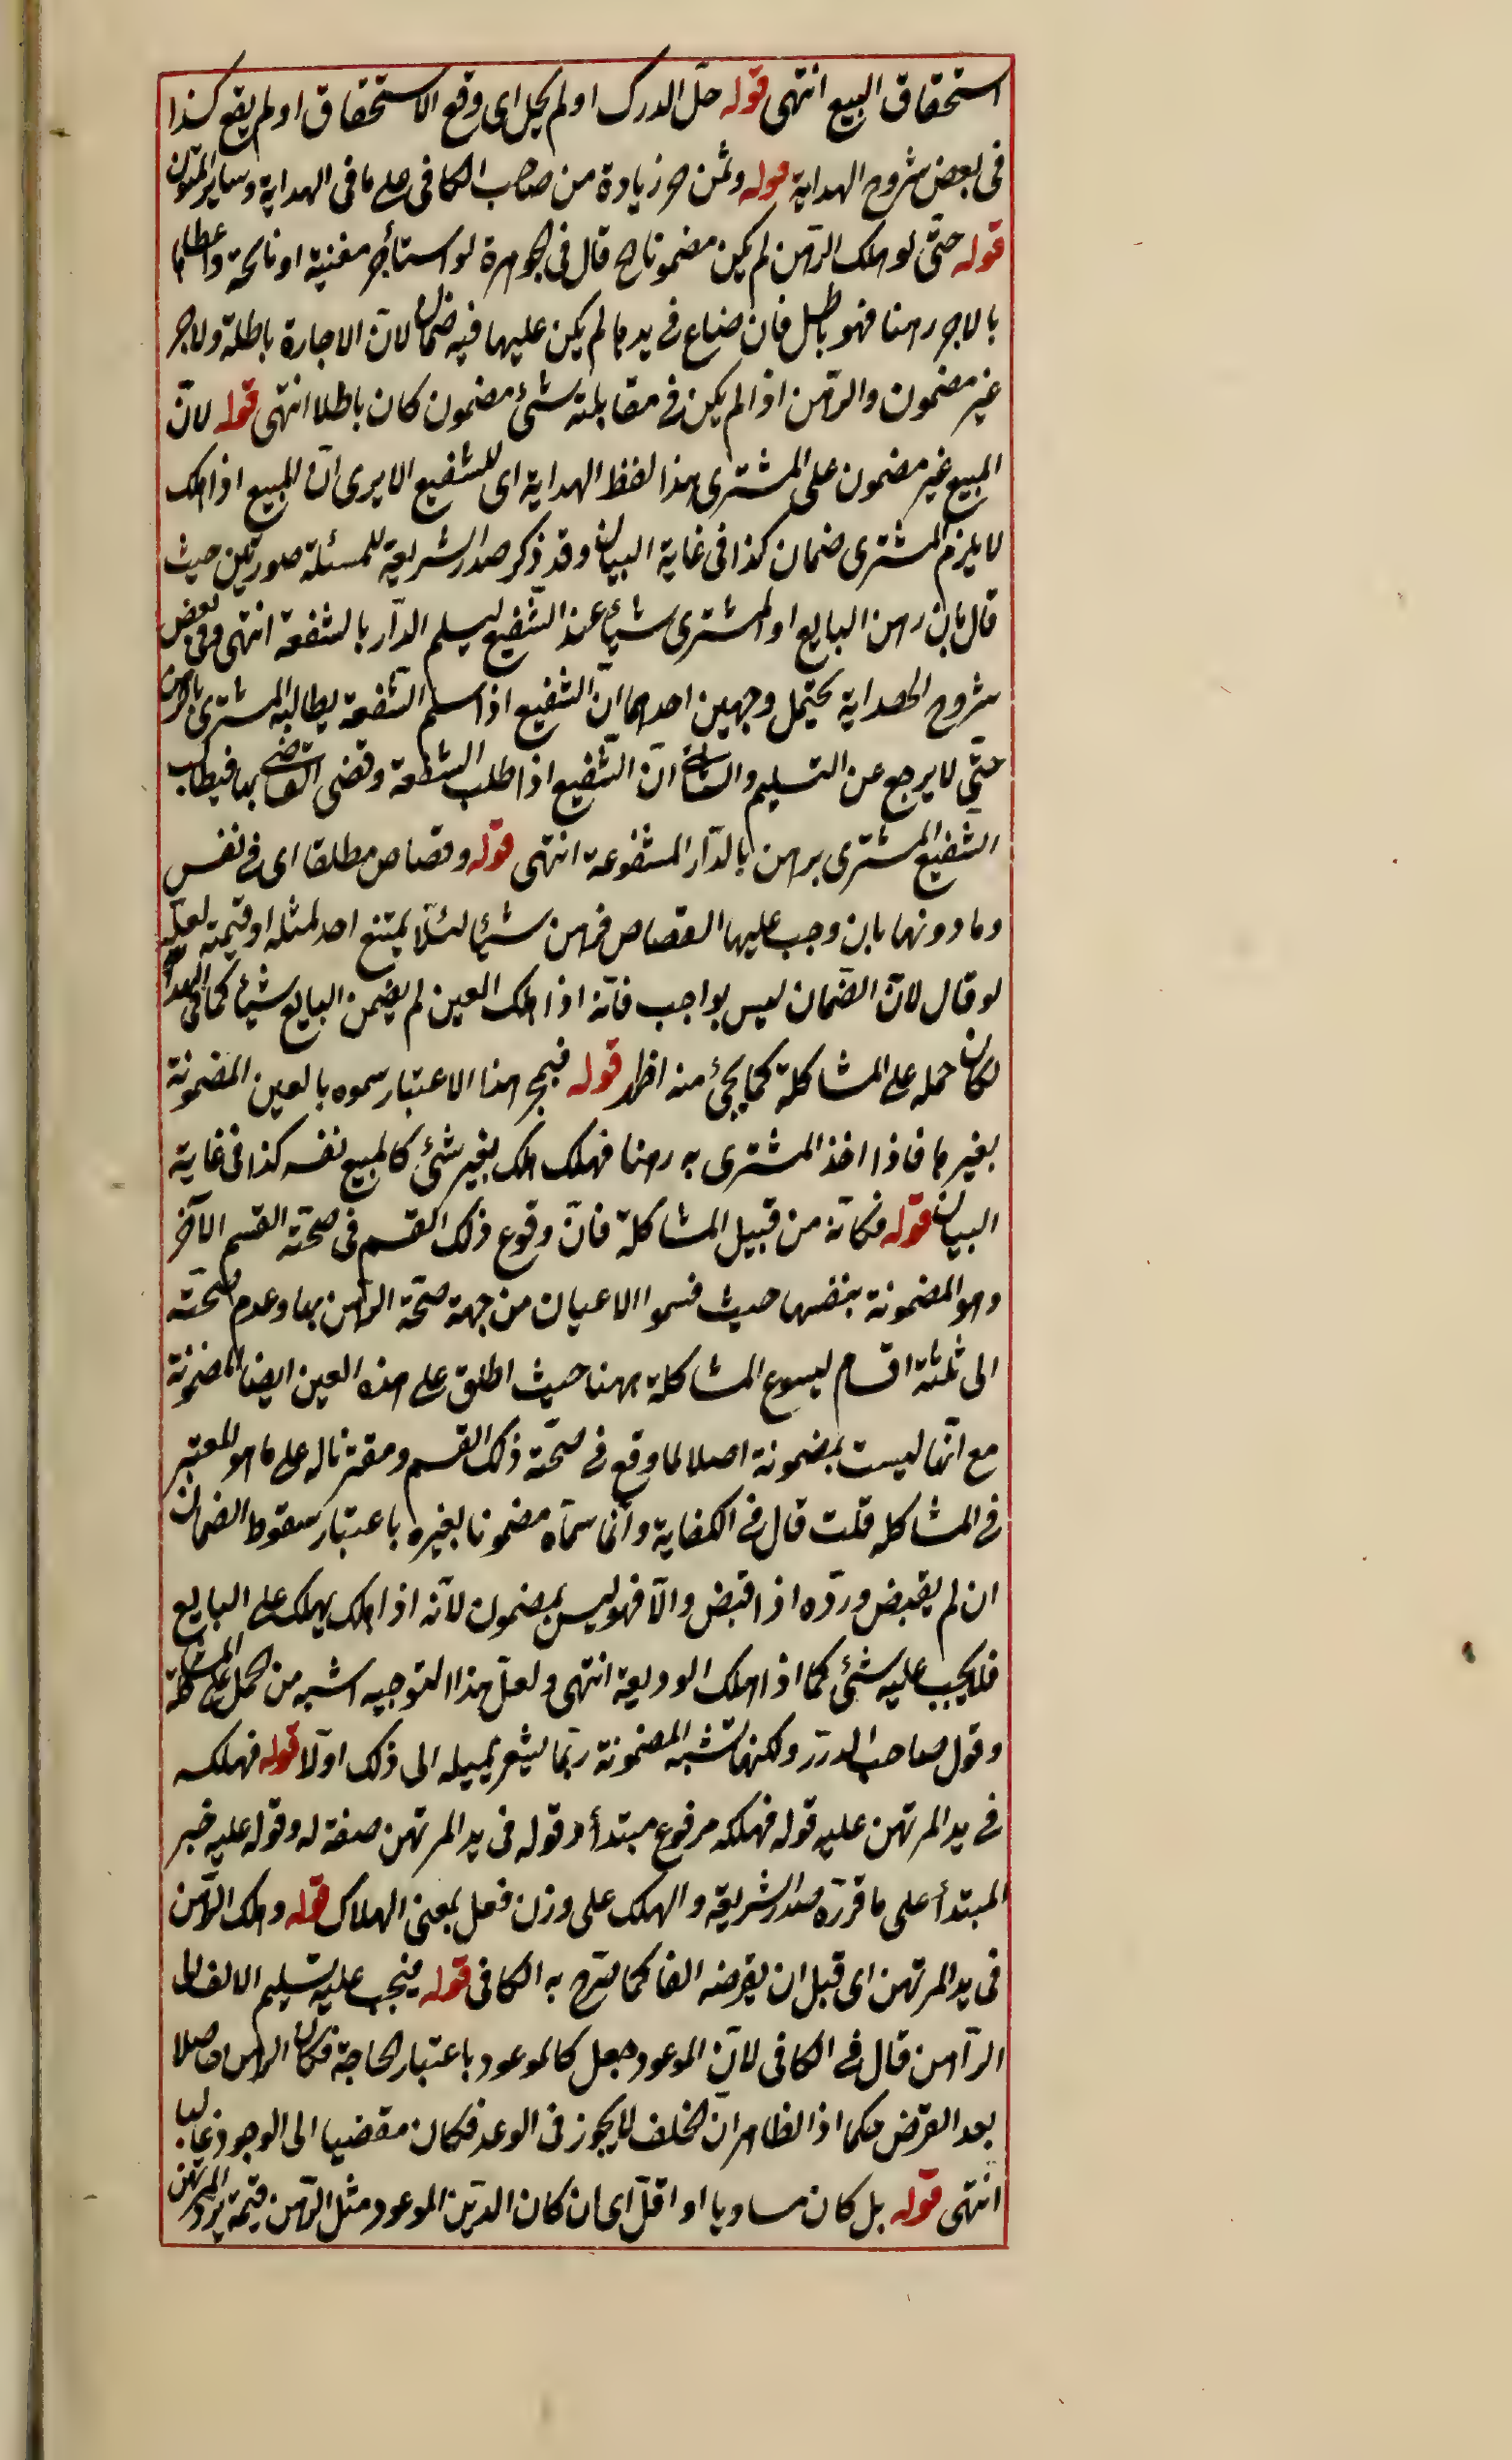 استحقاق البيع انتهى قوله حل الدرك او لم يحل اى وقع الاستحقاق او لم يقع كذا
فى بعض شروح الهداية قوله وثمن حر زيادة من صاحب الكافى على ما فى الهداية وساير المتون
قوله حتى لو هلك الرهن لم يكن مضمونا الخ قال فى الجوهرة لو استأجر مغنية او نائحة واعطاها
بالاجر رهنا فهو باطل فان ضاع فى يدها لم يكن عليها فيه ضمان لان الاجارة باطلة ولاجر
غير مضمون والرهن اذا لم يكن فى مقابلته شئ مضمون كان باطلا انتهى قوله لان
المبيع غير مضمون على المشترى هذا لفظ الهداية اى للشفيع الا يرى ان المبيع اذا هلك
لا يلزم المشترى ضمان كذا فى غاية البيان وقد ذكر صدر الشريعة للمسئلة صورتين حيث
قال بان رهن البايع او المشترى شيأ عند الشفيع ليسلم الدار بالشفعة انتهى وفى بعض
شروح الهداية يحتمل وجهين احدهما ان الشفيع اذا سلم الشفعة يطالبه المشترى بالرهن
حتى لا يرجع عن التسليم والثانى ان الشفيع اذا طلب الشفعة وقضى القاضى بها فيطالب
الشفيع المشترى برهن بالدار المشفوعة انتهى قوله وقصاص مطلقا اى فى نفس
وما دونها بان وجب عليها القصاص فرهن شيئا لئلا يمتنع احد لمثله او قيمته لعله
لو قال لان الضمان ليس بواجب فانه اذا هلك العين لم يضمن البايع شيئا كما فى الهداية
لكان حمله على المشاكلة كما يجئ منه اظهر قوله فبجر هذا الاعتبار سموه بالعين المضمونة
بغيرها فاذا اخذ المشترى به رهنا فهلك هلك بغير شئ كالمبيع نفسه كذا فى غاية
البيان قوله فكانه من قبيل المشاكلة فان وقوع ذلك القسم فى صحته القسم الآخر
وهو المضمونة بنفسها حيث قسموا الاعيان من جهة صحة الرهن بها وعدم صحته
الى ثلثة اقسام ليسوع المشاكلة ههنا حيث اطلق على هذه العين ايضا المضمونة
مع انها ليست بمضمونة اصلا لما وقع فى صحته ذلك القسم ومقترنا له على ما هو المعتبر
فى المشاكله قلت قال فى الكفاية وانما سماه مضمونا بغيره باعتبار سقوط الضمان
ان لم يقبض ورده اذا قبض والا فهو ليس بمضمون لانه اذا هلك يهلك على البايع
فلا يجب عليه شئ كما اذا هلك الوديعة انتهى ولعل هذا التوجيه اشبه من الحمل على المشاكلة
وقول صاحب الدرر ولكنها تشبه المضمونة ربما يشعر بميله الى ذلك اولا قوله فهلكه
فى يد المرتهن عليه قوله فهلكه مرفوع مبتدأ وقوله فى يد المرتهن صفة له وقوله عليه خبر
المبتدأ على ما قرره صدر الشريعة والهلك على وزن فعل بمعنى الهلاك قوله وهلك الرهن
فى يد المرتهن اى قبل ان يقرضه الفا كما صرح به الكافى قوله فيجب عليه تسليم الالف الى
الراهن قال فى الكافى لان الموعود جعل كالموعود باعتبار الحاجة فكان الرهن حاصلا
بعد القرض حكما اذ الظاهر ان الخلف لا يجوز فى الوعد فكان مفضيا الى الوجود غالبا
انتهى قوله بل كان مساويا او اقل اى ان كان الدين الموعود مثل الرهن قيمة يرد المرتهن